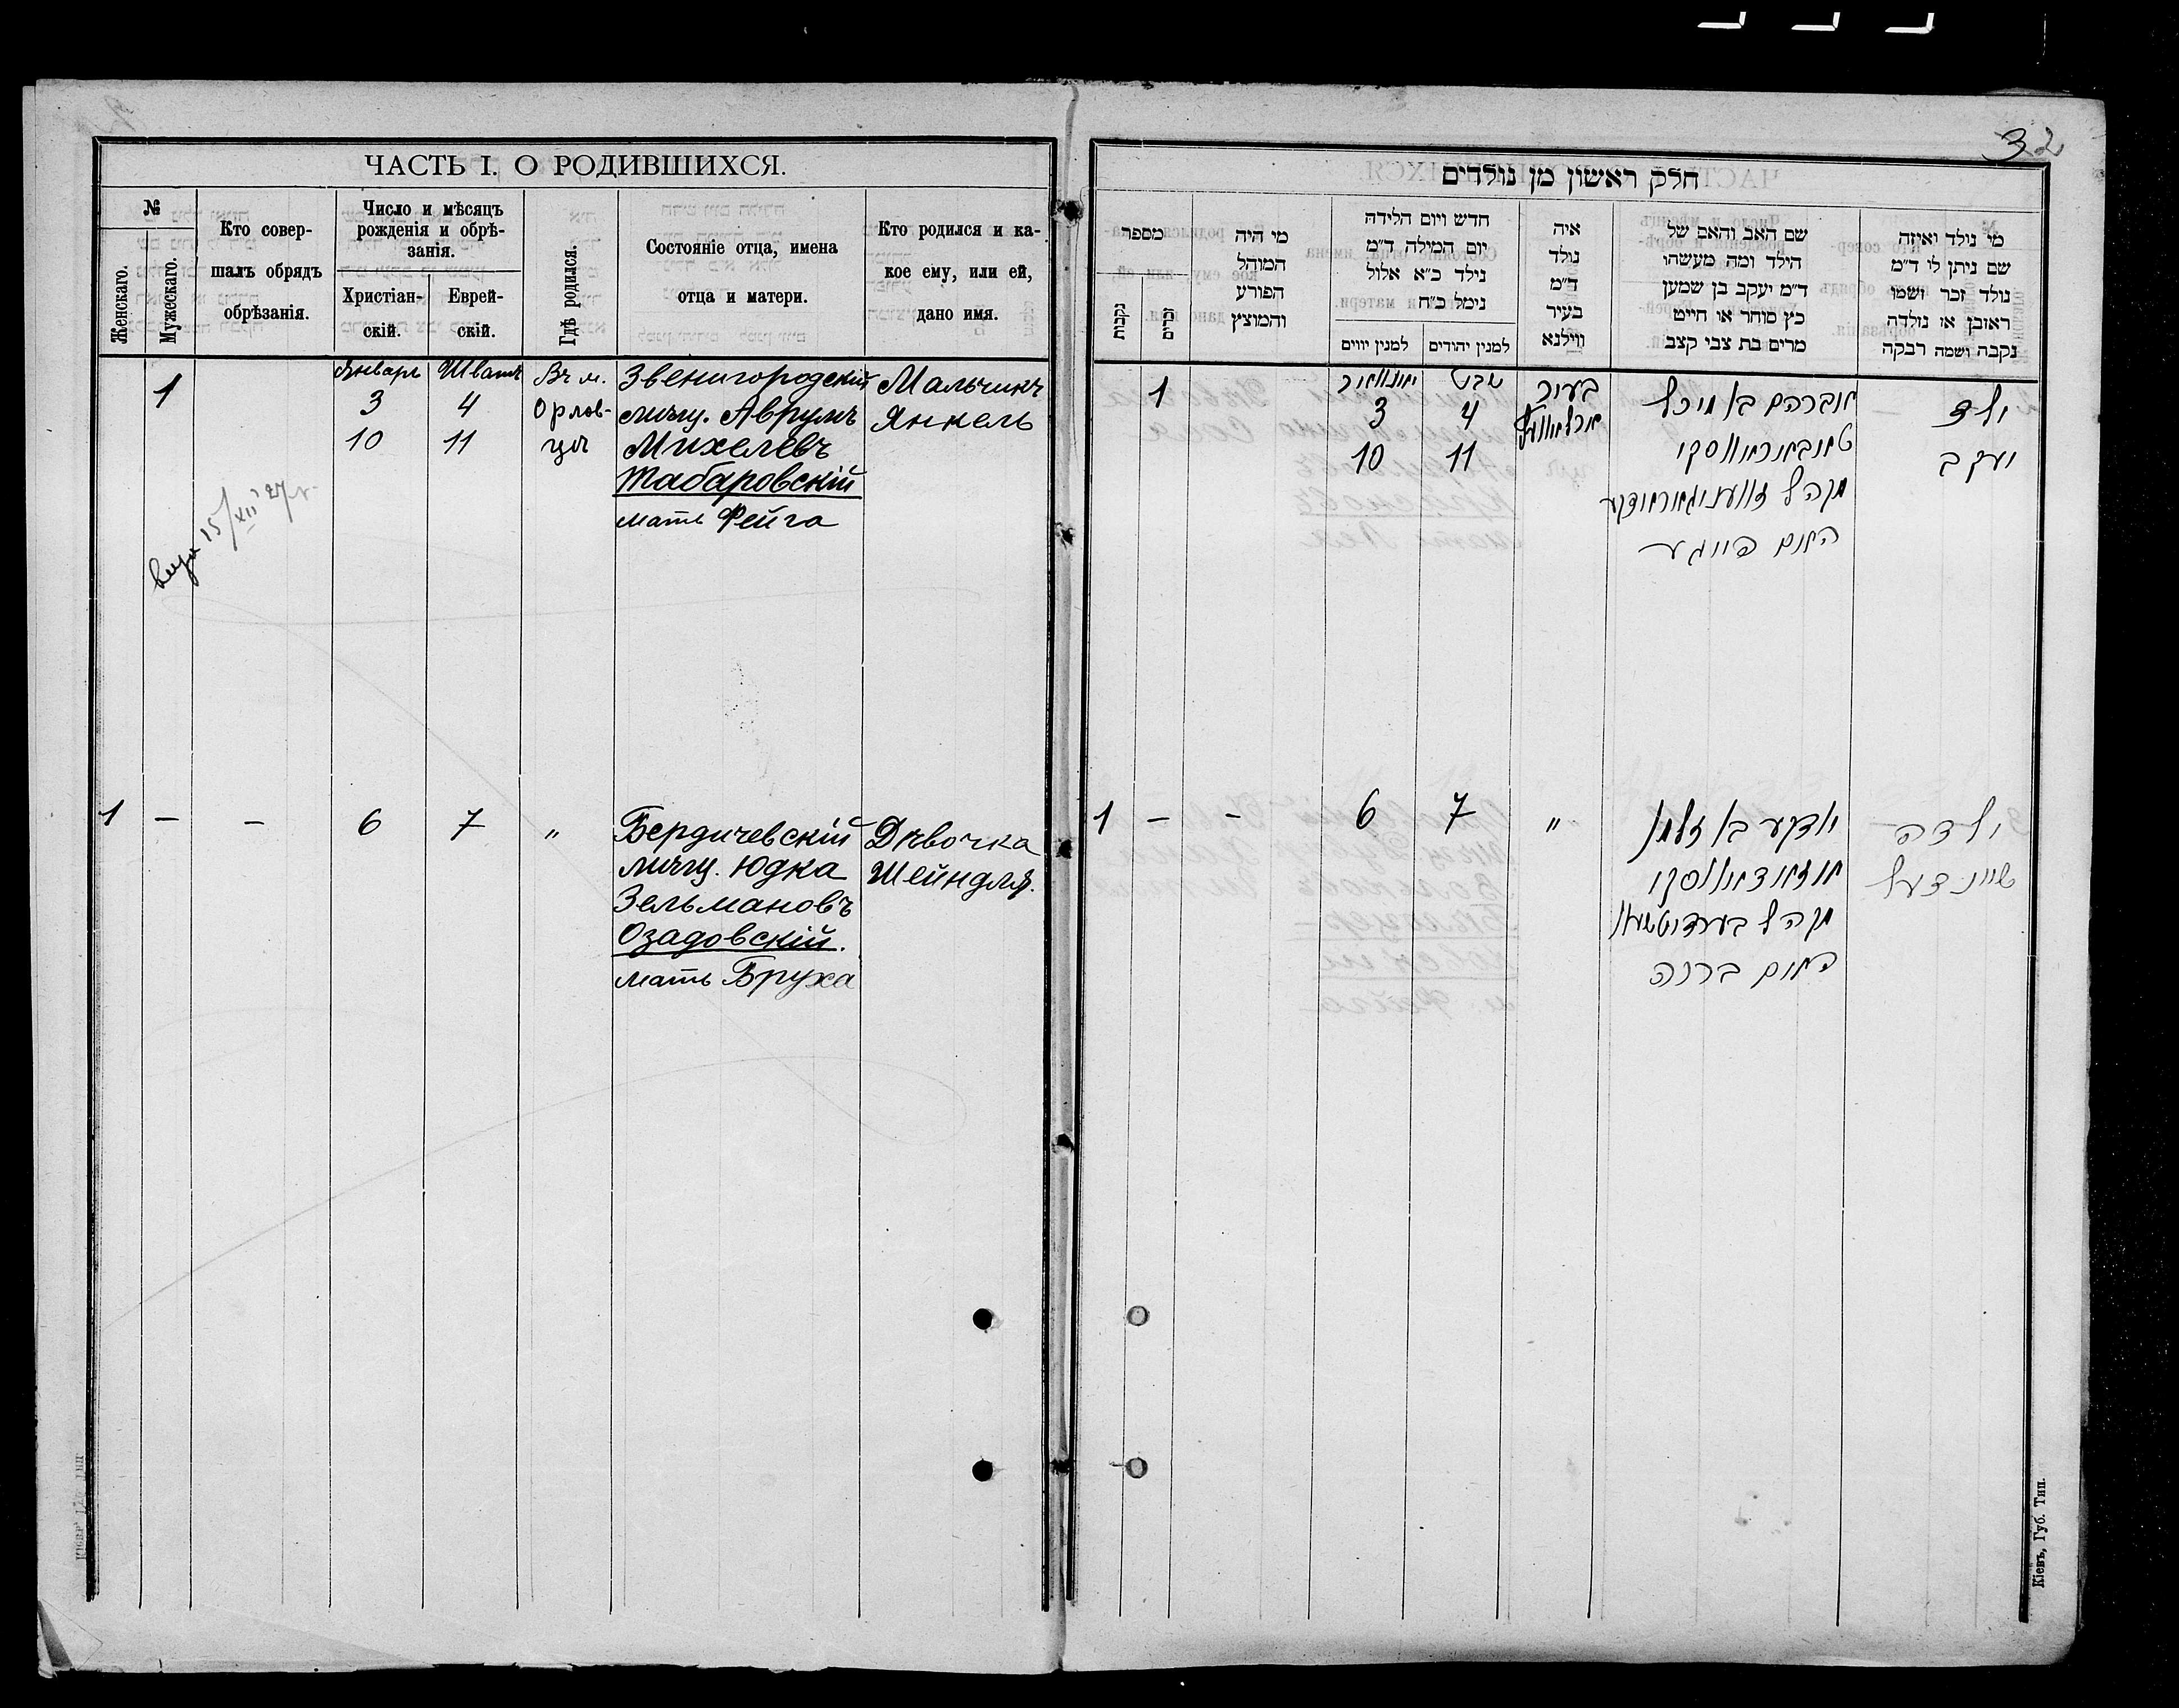 32
ЧАСТЬ I. О РОДИВШИХСЯ.
№
Женскаго.
Мужескаго.
Кто совер-
шалъ обрядъ
обрѣзанія.
Число и мѣсяцъ
рожденія и обрѣ-
занія.
Христіан-
скій.
Еврей-
скій.
Гдѣ родился.
Состояніе отца, имена
отца и матери.
Кто родился и ка-
кое ему, или ей,
дано имя.
1
Январь
3
10
Шватъ
4
11
Въ м.
Орлов-
цѣ
Звенигородскій
мѣщ. Аврумъ
Михелевъ
Табаровскій
мать Фейга
Мальчикъ
Янкель
15/XII 27 г.
1
—
—
6
7
"
Бердичевскій
мѣщ. Юдка
Зельмановъ
Озадовскій.
мать Бруха
Дѣвочка
Шейндля.
חלק ראשון מן נולדים
מי נולד ואיזה
שם ניתן לו ד״מ
נולד זכר ושמו
ראובן או נולדה
נקבה ושמה רבקה
שם האב והאם של
הילד ומה מעשהו
ד״מ יעקב בן שמעון
כץ סוחר או חייט
מרים בת צבי קצב
איה
נולד
ד״מ
בעיר
ווילנא
חדש ויום הלידה
יום המילה ד״מ
נילד כ״א אלול
נימל כ״ח
למנין יהודים
למנין יווים
מי היה
המוהל
הפורע
והמוצץ
מספר
זכרים
נקבות
ילד
יעקב
אברהם בן מיכל
טאבאראווסקי
מקהל זוועניגאראדקע
האם פייגע
בעיר
שבט
4
11
יאנואר
3
10
1
ילדה
שיינדעל
יודקע בן זלמן
אזאדאווסקי
מקהל בערדיטשעוו
האם ברכה
"
7
6
-
—
1
Кіевъ, Губ. Тип.